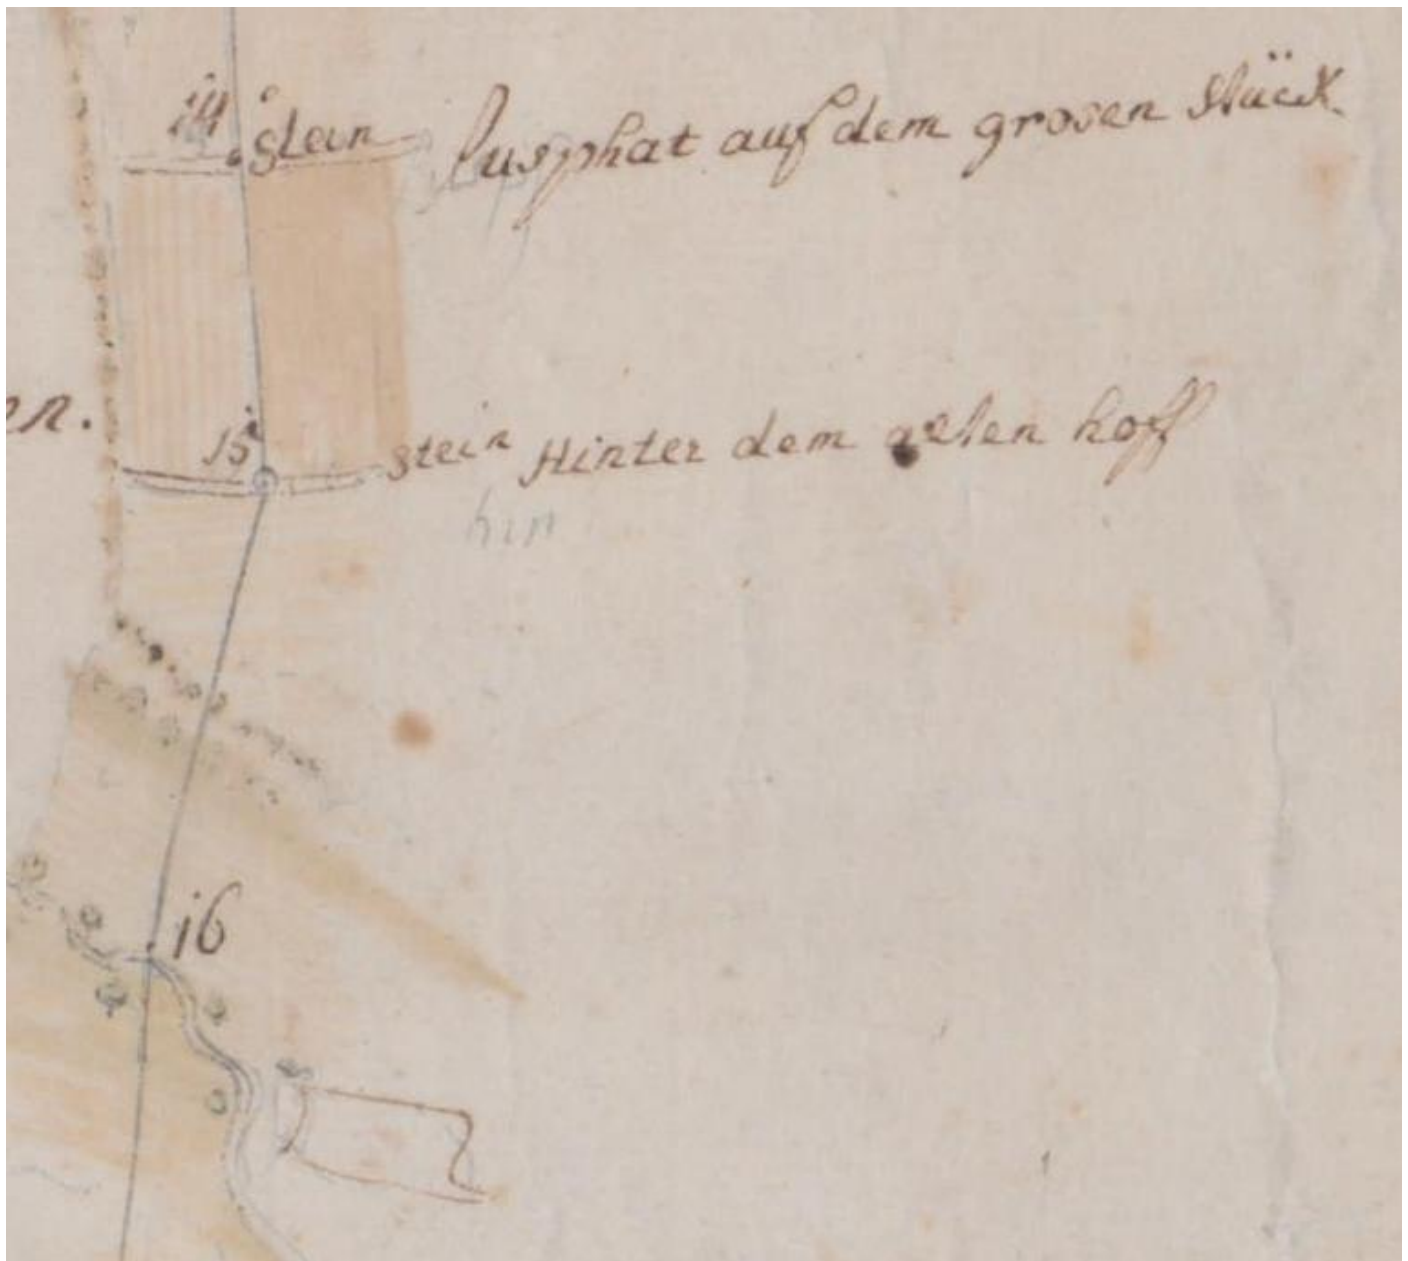 14 stein fusphat auf dem grosen stück
en.
15 stein Hinter dem alten hoff
hin
16